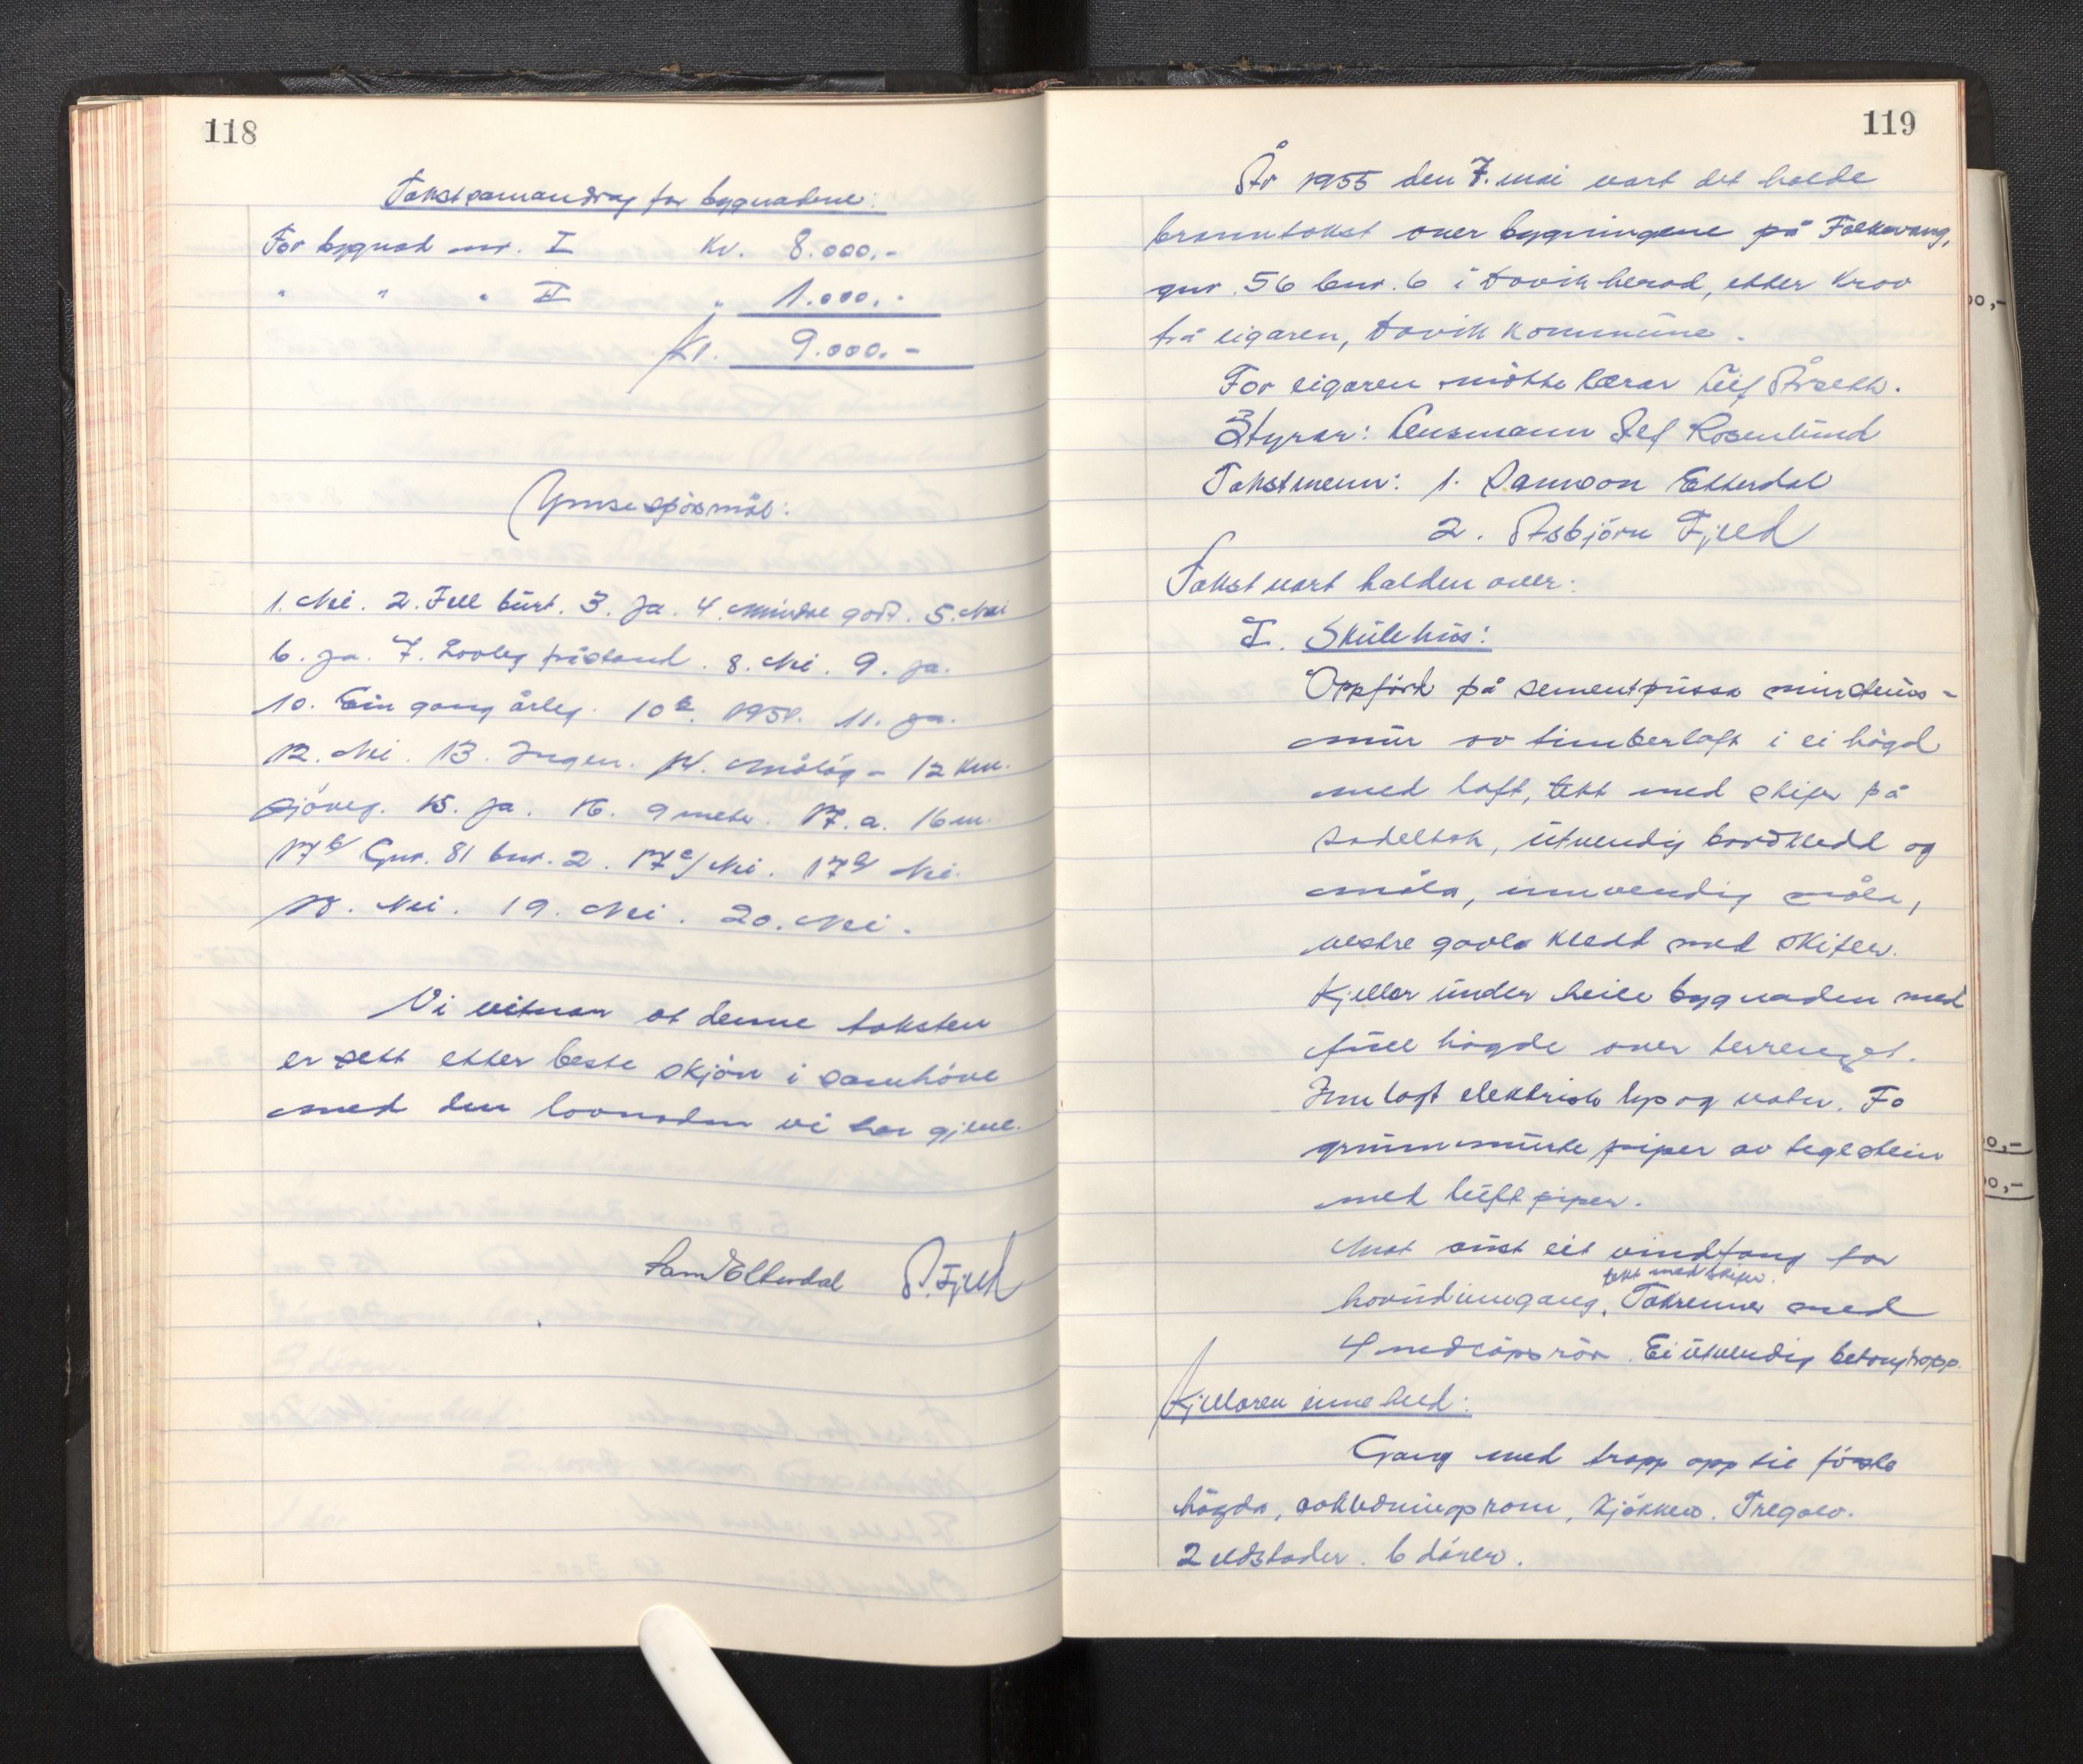 118
Takstsamandrag for bygnadene:
For bygnad nr. I Kr. 8.000,-
" " " II " 1.000,-
Kr. 9.000,-
Ymse spösmål:
1. Nei. 2. Fell burt. 3. Ja. 4. Mindre godt. 5. Nei
6. Ja. 7. Lovleg tilstand. 8. Nei. 9. Ja.
10. Ein gang årleg. 10b. 11. Ja.
12. Nei. 13. Ingen. 14. Målöy - 12 km.
sjöveg. 15. Ja. 16. 9 meter. 17.a. 16 m.
17b/ Gnr. 81 bnr. 2. 17c/ Nei. 17d/ Nei.
18. Nei. 19. Nei. 20. Nei.
Vi vitnar at denne taksten
er sett etter beste skjön i samhöve
med den lovnaden vi har gjeve.
Sam Elterdal A. Fjeld
119
År 1955 den 7. mai vart det halde
branntakst over bygningene på Folkevang,
gnr. 56 bnr. 6 i Davik herad, etter krav
frå eigaren, Davik kommune.
For eigaren mötte lærar Leif Årseth.
Styrar: Lensmann Alf Rosenlund
Takstmenn: 1. Samson Elterdal
2. Asbjörn Fjeld
Takst vart halden over:
I. Skulehus:
Oppförd på sementpussa mursteins-
mur av timberlaft i ei högd
med loft, tekt med skifer på
sadeltak, utvendig bordkledd og
måla, innvendig måla,
vestre gavle kledd med skifer.
Kjellar under heile bygnaden med
full högde over terrenget.
Innlagt elektrisk lys og vatn. To
grunnmurte piper av teglstein
med luftpiper.
Mot aust eit vindfang for
tekt med skifer.
hovudinngang. Takrenner med
4 nedlöpsrör. Ei utvendig betongtrapp.
Kjellaren inneheld:
Gang med trapp opp til förste
högda, avkledningsrom, kjökken. Tregolv.
2 eldstader. 6 dörer.
00,-
0,-
0,-